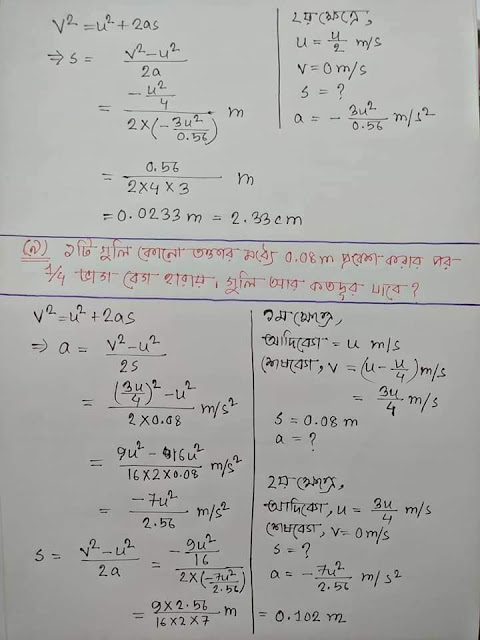 v² = u² + 2as
⇒ s = (v² - u²)/2a
= (-u²/4)/(2×(-3u²/0.56)) m
= 0.56/(2×4×3) m
= 0.0233 m = 2.33 cm
২য় ক্ষেত্রে,
u = u/2 m/s
v = 0 m/s
s = ?
a = - 3u²/0.56 m/s²
১টি গুলি কোনো তক্তার মধ্যে 0.08 m প্রবেশ করার পর
1/4 ভাগ বেগ হারায়। গুলি আর কতদূর যাবে?
v² = u² + 2as
⇒ a = (v² - u²)/2s
= ((3u/4)² - u²)/(2×0.08) m/s²
= (9u² - 16u²)/(16×2×0.08) m/s²
= -7u²/2.56 m/s²
s = (v² - u²)/2a = (-9u²/16)/(2×(-7u²/2.56))
= (9×2.56)/(16×2×7) m = 0.102 m
১ম ক্ষেত্রে,
আদিবেগ = u m/s
শেষবেগ, v = (u - u/4) m/s
= 3u/4 m/s
s = 0.08 m
a = ?
২য় ক্ষেত্রে,
আদিবেগ, u = 3u/4 m/s
শেষবেগ, v = 0 m/s
s = ?
a = - 7u²/2.56 m/s²